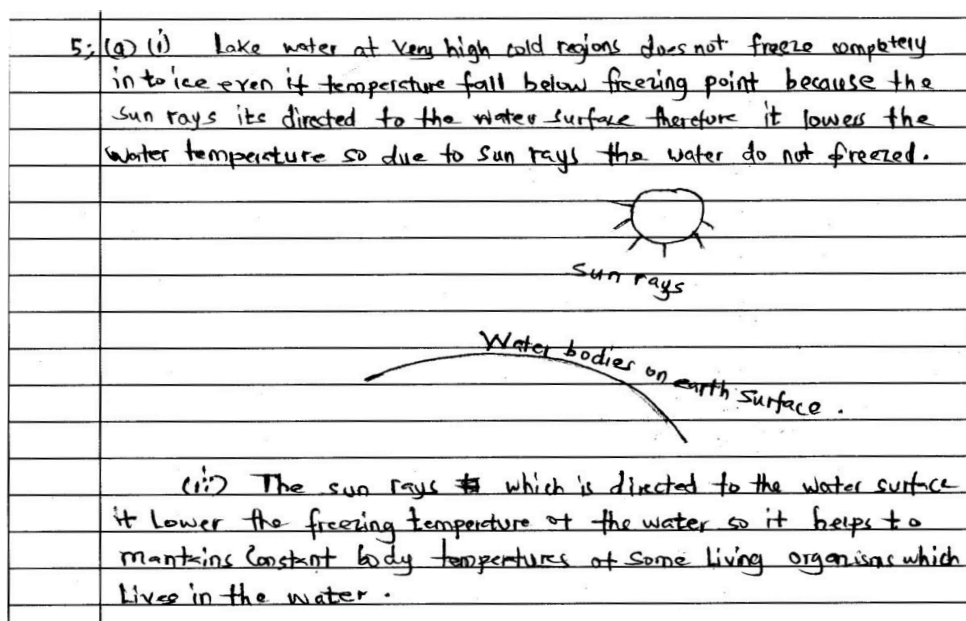 5; (a) (i) Lake water at very high cold regions does not freeze completely
in to ice even if temperature fall below freezing point because the
sun rays its directed to the water surface therefore it lowers the
water temperature so due to sun rays the water do not freezed.
sun rays
Water bodies on earth surface.
(ii) The sun rays which is directed to the water surface
it lower the freezing temperature of the water so it helps to
mantains constant body temperatures of some living organisms which
lives in the water.